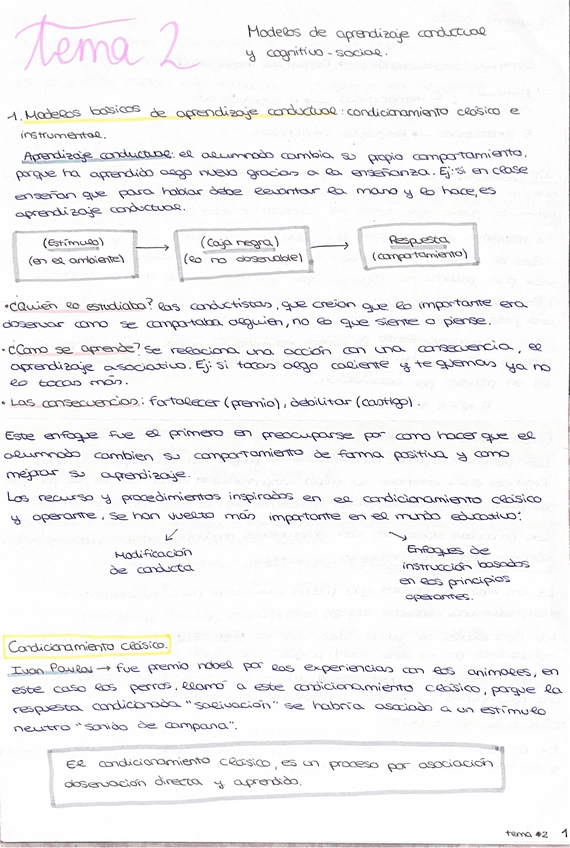 tema 2
Modelos de aprendizaje conductual
y cognitivo-social.
1. Modelos básicos de aprendizaje conductual: condicionamiento clásico e
instrumental.
Aprendizaje conductual: el alumnado cambia su propio comportamiento,
porque ha aprendido algo nuevo gracias a la enseñanza. Ej: si en clase
enseñan que para hablar debe levantar la mano y lo hace, es
aprendizaje conductual.
(Estímulo)
(en el ambiente)
(Caja negra)
(lo no observable)
Respuesta
(comportamiento)
• ¿Quién lo estudiaba? los conductistas, que creían que lo importante era
observar como se comportaba alguien, no lo que siente o piense.
• ¿Cómo se aprende? Se relaciona una acción con una consecuencia, el
aprendizaje asociativo. Ej: si tocas algo caliente y te quemas ya no
lo tocas más.
• Las consecuencias: fortalecer (premio), debilitar (castigo).
Este enfoque fue el primero en preocuparse por como hacer que el
alumnado cambien su comportamiento de forma positiva y como
mejorar su aprendizaje.
Los recurso y procedimientos inspirados en el condicionamiento clásico
y operante, se han vuelto más importante en el mundo educativo:
Modificación
de conducta
Enfoques de
instrucción basados
en los principios
operantes.
Condicionamiento clásico.
Ivan Paulov → fue premio nobel por las experiencias con los animales, en
este caso los perros. llamó a este condicionamiento clásico, porque la
respuesta condicionada "salivación" se habría asociado a un estímulo
neutro "sonido de campana".
El condicionamiento clásico, es un proceso por asociación
observación directa y aprendido.
tema #2 1